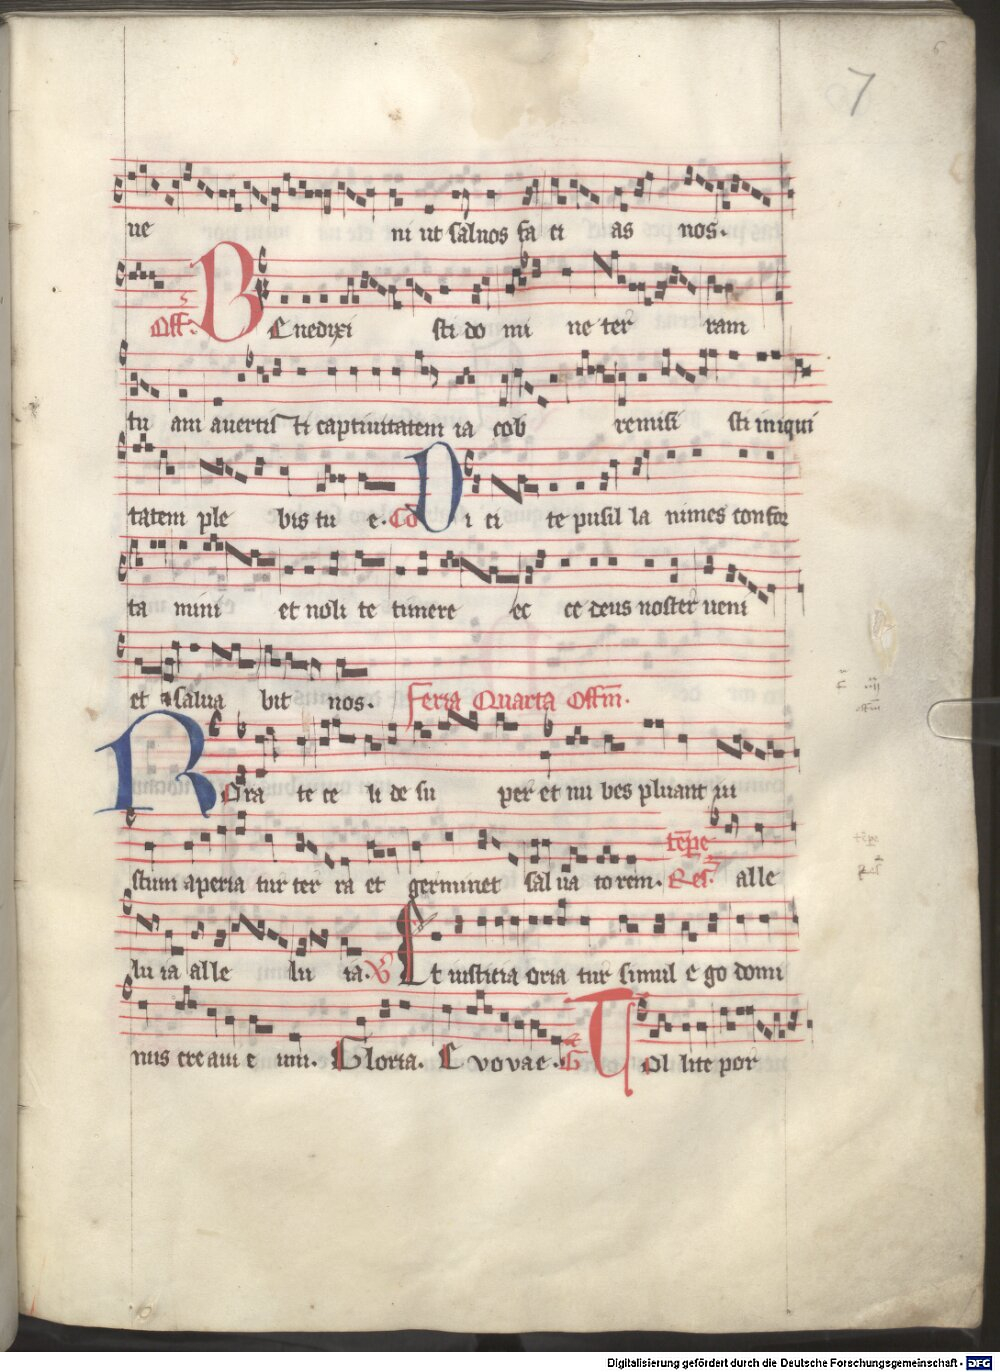 7
ue ni ut saluos fa ci as nos.
Off. BEnedixi sti do mi ne ter ram
tu am auertis ti captiuitatem ia cob remisi sti iniqui
tatem ple bis tu e. Co Di ci te pusil la nimes confor
ta mini et noli te timere ec ce deus noster ueni
et salua bit nos. Feria Quarta Offm.
ROra te ce li de su per et nu bes pluant iu
stum aperia tur ter ra et germinet sal ua torem. tēpe alle
lu ia alle lu ia. V Et iusticia oria tur simul e go domi
nus creaui e um. Gloria. E vovae. G Tol lite por
Digitalisierung gefördert durch die Deutsche Forschungsgemeinschaft - DFG